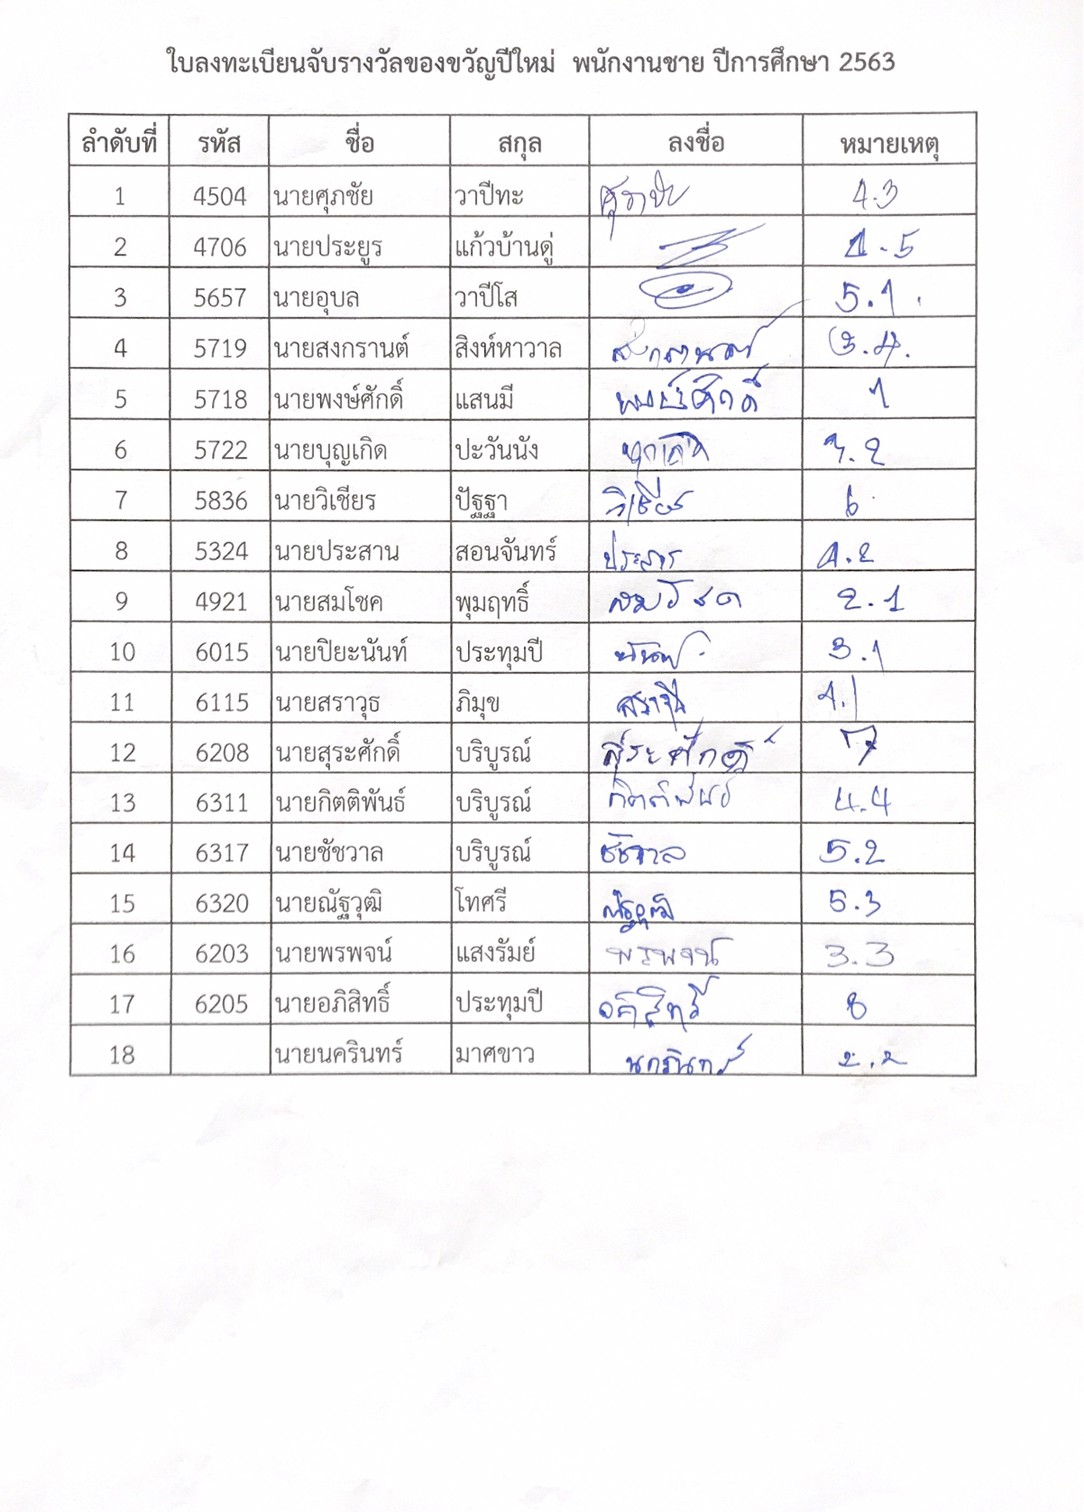 ใบลงทะเบียนจับรางวัลของขวัญปีใหม่ พนักงานชาย ปีการศึกษา 2563
ลำดับที่ รหัส ชื่อ สกุล ลงชื่อ หมายเหตุ
1 4504 นายศุภชัย วาปีทะ ศุภชัย 4.3
2 4706 นายประยูร แก้วบ้านดู่
3 5657 นายอุบล วาปีโส 5.1
4 5719 นายสงกรานต์ สิงห์หาวาล สงกรานต์ 3.4
5 5718 นายพงษ์ศักดิ์ แสนมี พงษ์ศักดิ์ 1
6 5722 นายบุญเกิด ปะวันนัง
7 5836 นายวิเชียร ปัฐฐา วิเชียร 6
8 5324 นายประสาน สอนจันทร์ ประสาน 4.2
9 4921 นายสมโชค พุมฤทธิ์ สมโชค 2.1
10 6015 นายปิยะนันท์ ประทุมปี 3.1
11 6115 นายสราวุธ ภิมุข สราวุธ 4.1
12 6208 นายสุระศักดิ์ บริบูรณ์ สุระศักดิ์ 7
13 6311 นายกิตติพันธ์ บริบูรณ์ กิตติพันธ์ 4.4
14 6317 นายชัชวาล บริบูรณ์ ชัชวาล 5.2
15 6320 นายณัฐวุฒิ โทศรี ณัฐวุฒิ 5.3
16 6203 นายพรพจน์ แสงรัมย์ พรพจน์ 3.3
17 6205 นายอภิสิทธิ์ ประทุมปี อภิสิทธิ์ 8
18 นายนครินทร์ มาศขาว นครินทร์ 2.2